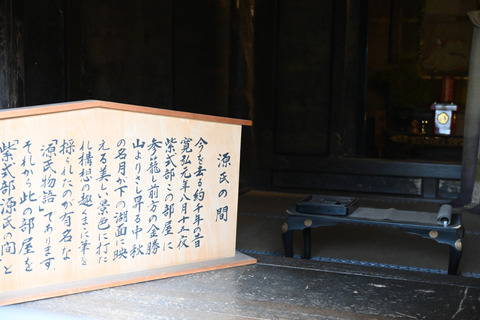 源氏の間
今を去る約千年の昔
寛弘元年八月十五夜
紫式部この部屋に
参籠し前方の金勝
山よりさし昇る中秋
の名月が下の湖面に映
える美しい景色に打た
れ構想の趣くままに筆を
採られたのが有名な
「源氏物語」であります。
それから此の部屋を
「紫式部源氏の間」と